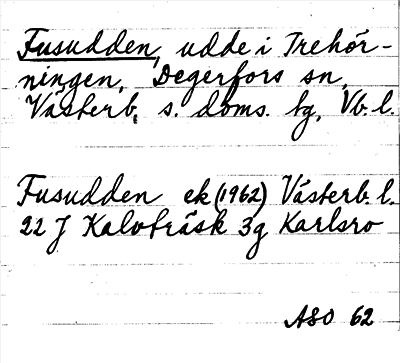 Fusudden, udde i Trehör-
ningen, Degerfors sn,
Västerb. s. doms. tg, Vb. l.
Fusudden ek (1962) Västerb. l.
22 J Kalvträsk 3g Karlsro
ASO 62